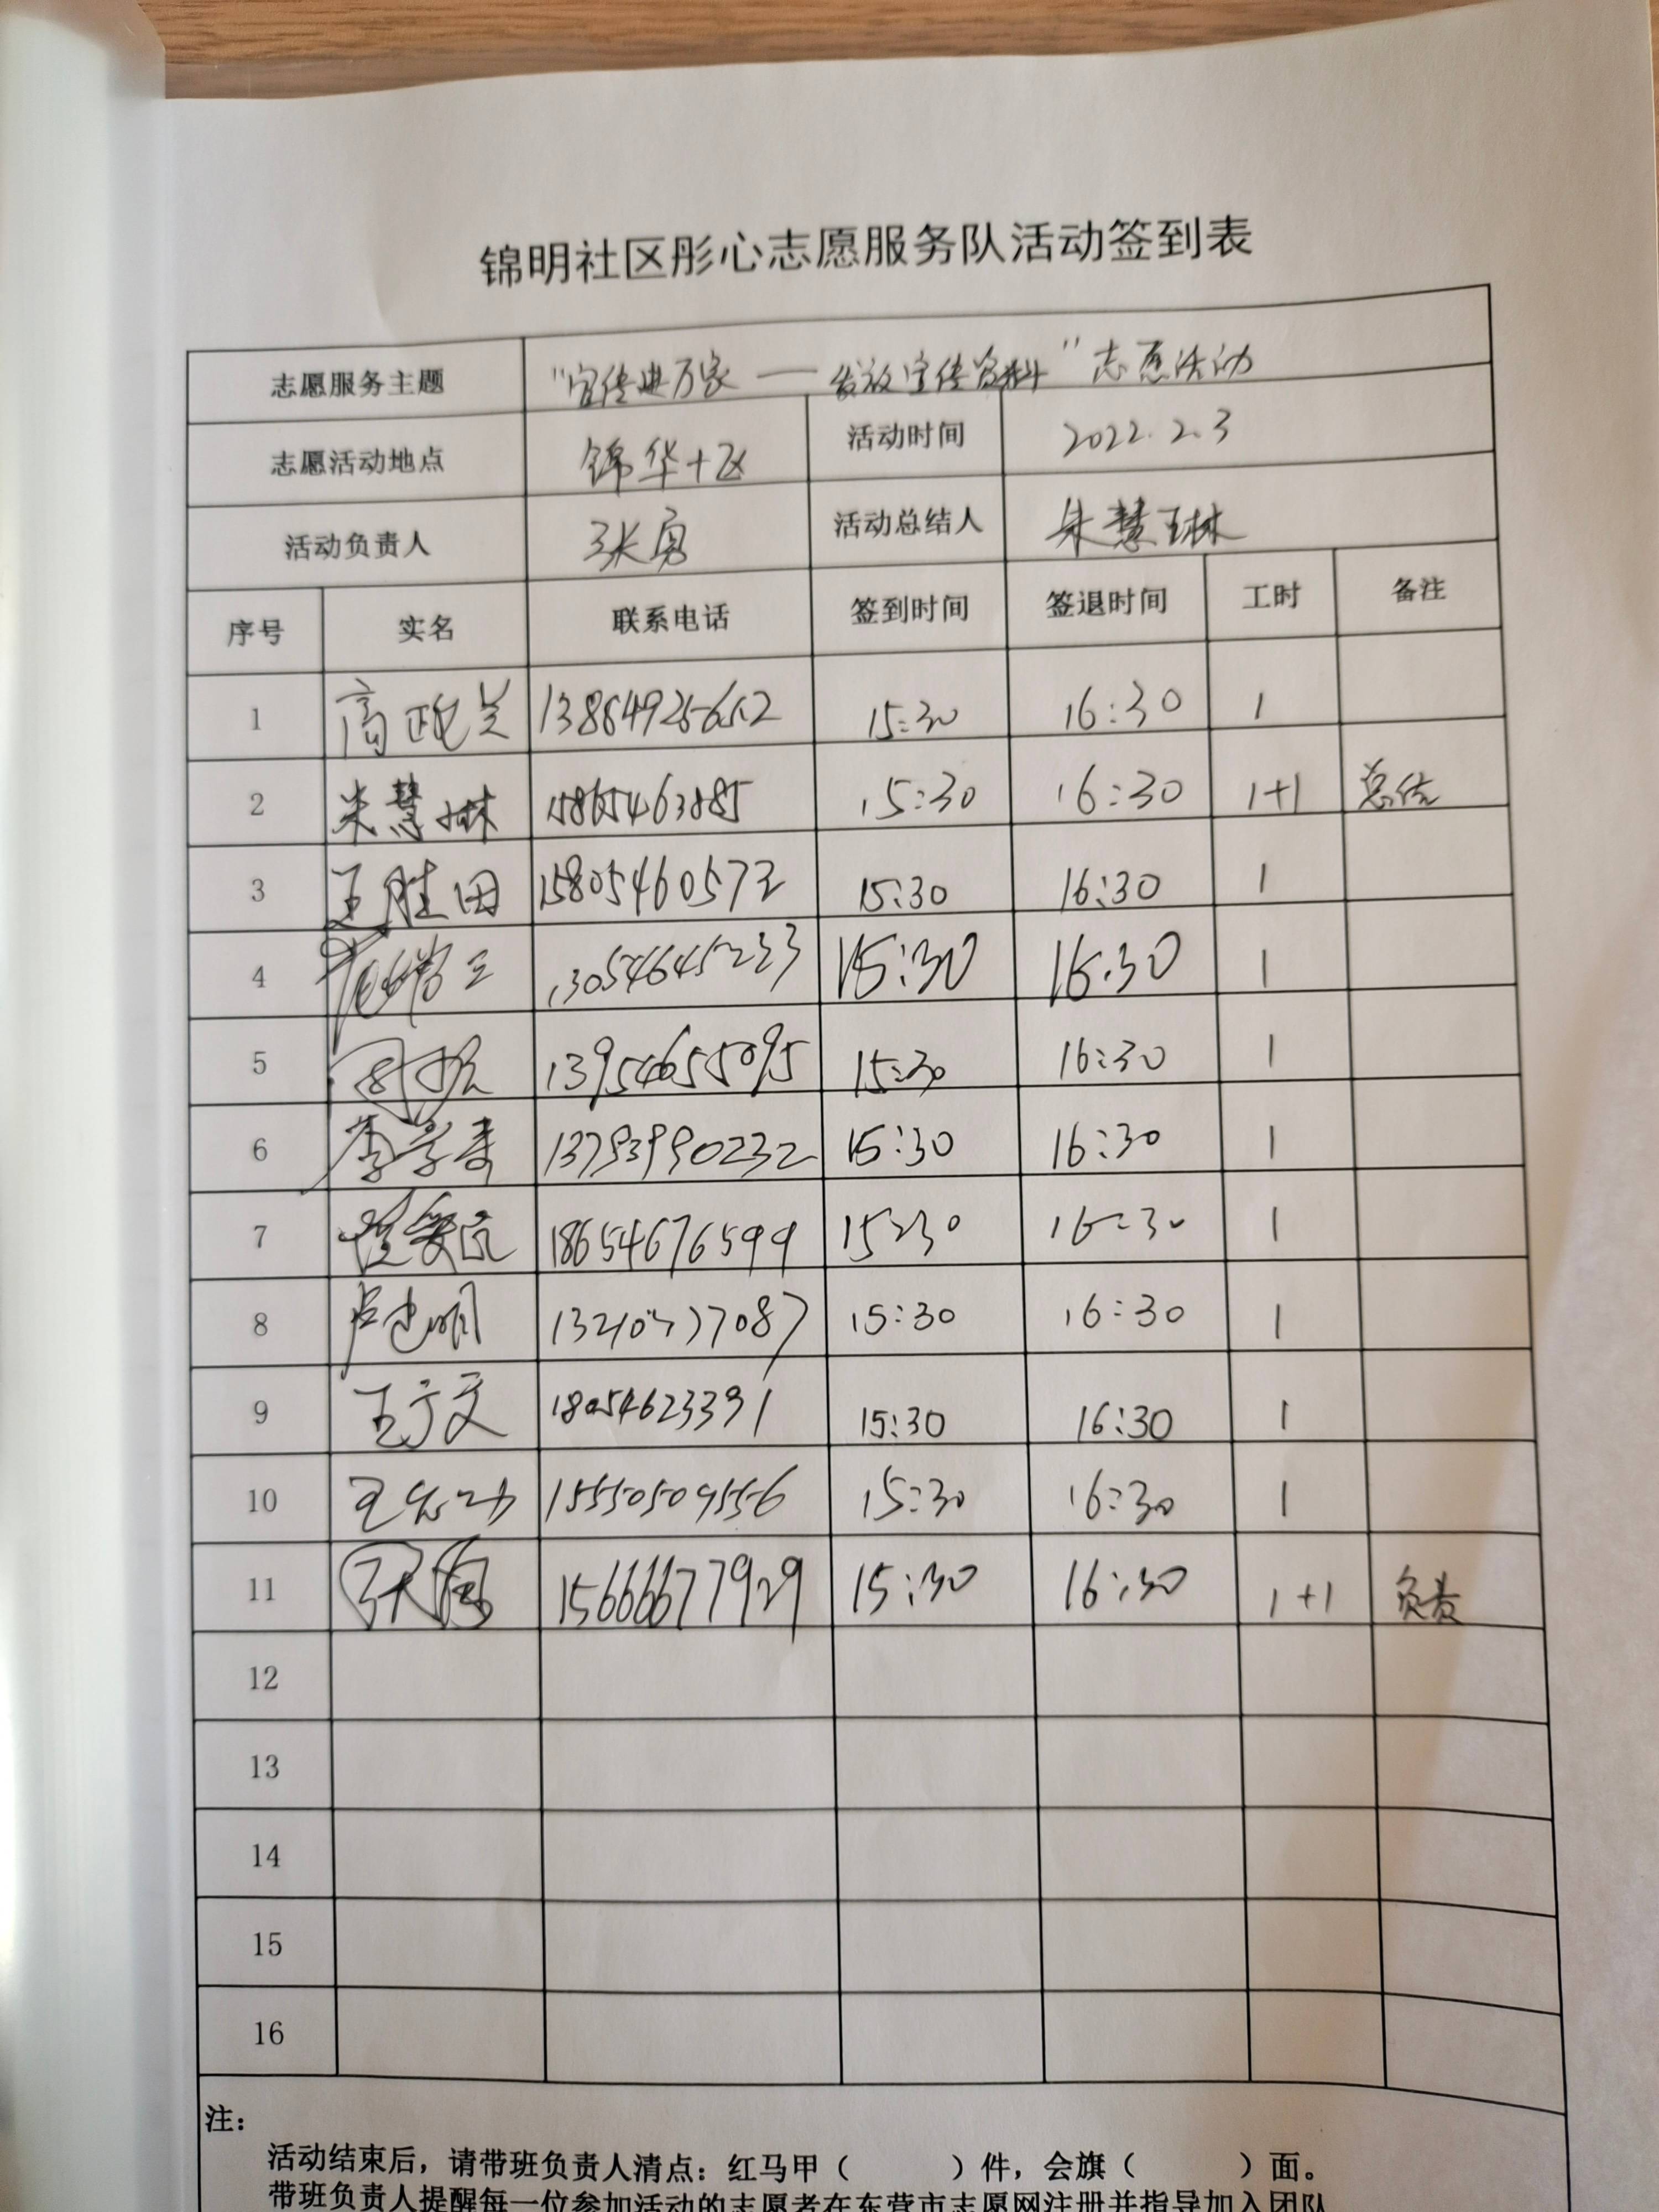 锦明社区彤心志愿服务队活动签到表
志愿服务主题 "宣传进万家——发放宣传资料"志愿活动
志愿活动地点 锦华十区 活动时间 2022.2.3
活动负责人 张勇 活动总结人 朱慧琳
序号 实名 联系电话 签到时间 签退时间 工时 备注
1 高政 15:30 16:30 1
2 朱慧琳 15865463885 15:30 16:30 1+1 总结
3 王胜田 15805460572 15:30 16:30 1
4 13054645233 15:30 16:30 1
5 13954655095 15:30 16:30 1
6 李学 13793990232 15:30 16:30 1
7 18654676599 15:30 16:30 1
8 卢建明 15:30 16:30 1
9 王于文 18054623391 15:30 16:30 1
10 王 15550509556 15:30 16:30 1
11 张勇 15666677929 15:30 16:30 1+1 负责
12
13
14
15
16
注:
活动结束后，请带班负责人清点：红马甲（ ）件，会旗（ ）面。
带班负责人提醒每一位参加活动的志愿者在东营市志愿网注册并指导加入团队